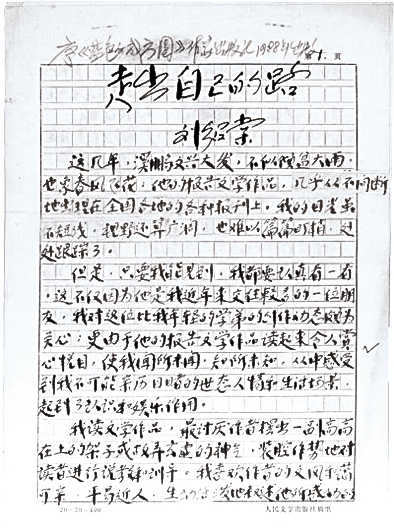 第1.页
走出自己的路
刘绍棠
这几年，溪鹏文兴大发，不似倾盆大雨，
也象春风飞花，他的报告文学作品，几乎从不间断
地出现在全国各地的各种报刊上。我的目光虽
不短浅，视野还算广阔，也难以篇篇盯梢，
跟踪了。
但是，只要我能见到，我都要认真看一看
。这不仅因为他是我近年来交往较多的一位朋
友，我对这位比我年轻的学弟的创作动态颇为
关心；更由于他的报告文学作品读起来令人赏
心悦目，使我闻所未闻，知所未知，从中感受
到我不可能亲历目睹的世态人情和生活场景，
起到了认识和娱乐作用。
我读文学作品，最讨厌作者摆出一副高高
在上的架子或故弄玄虚的神气，装腔作势地对
读者进行说教和训斥。我喜欢作者的文风和蔼
可亲，平易近人，生动活泼地叙述他所感的
20×20=400
人民文学出版社稿纸